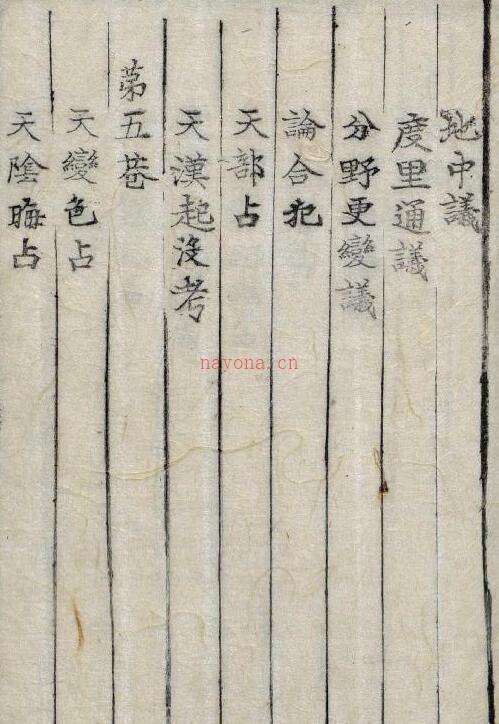 地中議
度里通議
分野更變議
論合犯
天部占
天漢起沒考
第五巷
天變色占
天陰晦占
nayona.cn